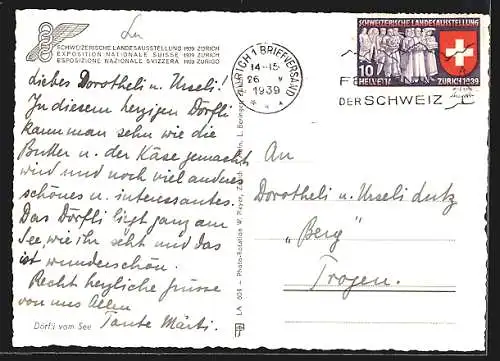 SCHWEIZERISCHE LANDESAUSSTELLUNG 1939 ZÜRICH
EXPOSITION NATIONALE SUISSE 1939 ZURICH
ESPOSIZIONE NAZIONALE SVIZZERA 1939 ZURIGO
Liebes Dorotheli u. Urseli!
In diesem herzigen Dörfli
kann man sehn wie die
Butter u. der Käse gemacht
wird und noch viel anderes
schönes u. interessantes.
Das Dörfli ligt ganz am
See, wie ihr seht und das
ist wunderschön.
Recht herzliche Grüsse
von uns Allen
Tante Märti.
Dörfli vom See
LA 604 - Photo-Rotation W. Pleyer, Zürich
SCHWEIZERISCHE LANDESAUSSTELLUNG
10
HELVETIA
ZÜRICH 1939
ZÜRICH 1 BRIEFVERSAND
14-15
26 V
1939
DER SCHWEIZ
An
Dorotheli u. Urseli Lutz
"Berg"
Trogen.